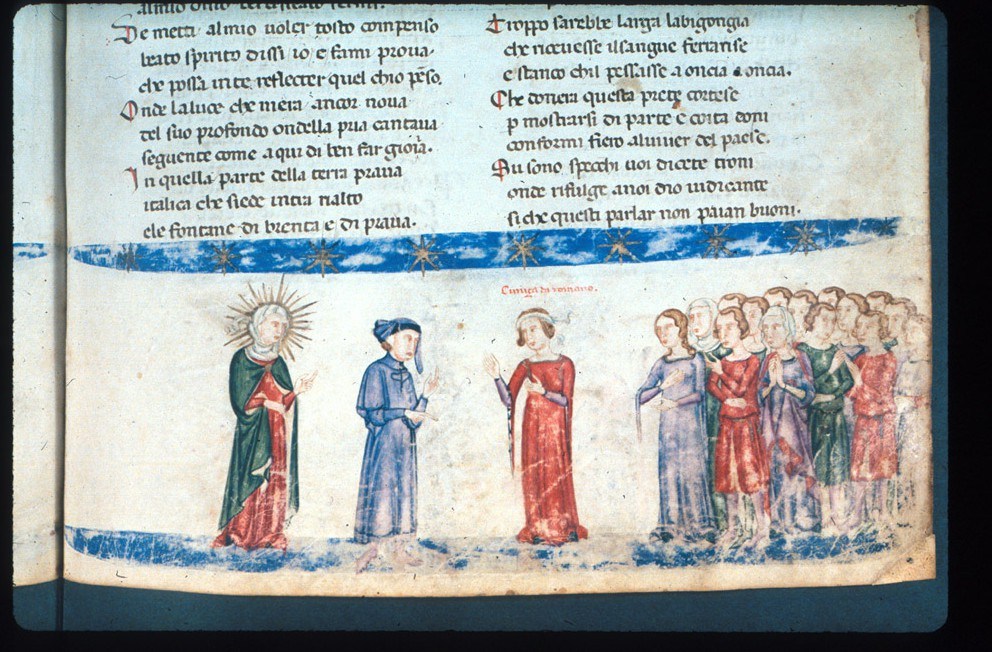 De metti almio uoler tosto compenso
beato spirito dissi io e fami proua
che possa in te reflecter quel chio peso.
Onde laluce che mera ancor noua
del suo profondo ondella pria cantaua
seguente come aqui di ben far gioua.
In quella parte della terra praua
italica che siede intra rialto
ele fontane di brenta e di praua.
Troppo sarebbe larga labigongia
che riceuesse ilsangue ferrarise
e stanco chil pessasse a oncia a oncia.
Che donera questa prete cortese
p mostrarsi di parte e cotai doni
conformi fiero aluiuer del paese.
Su sono specchi uoi dicete troni
onde rifulge anoi dio iudicante
si che questi parlar non paian buoni.
Cuniça da romano.